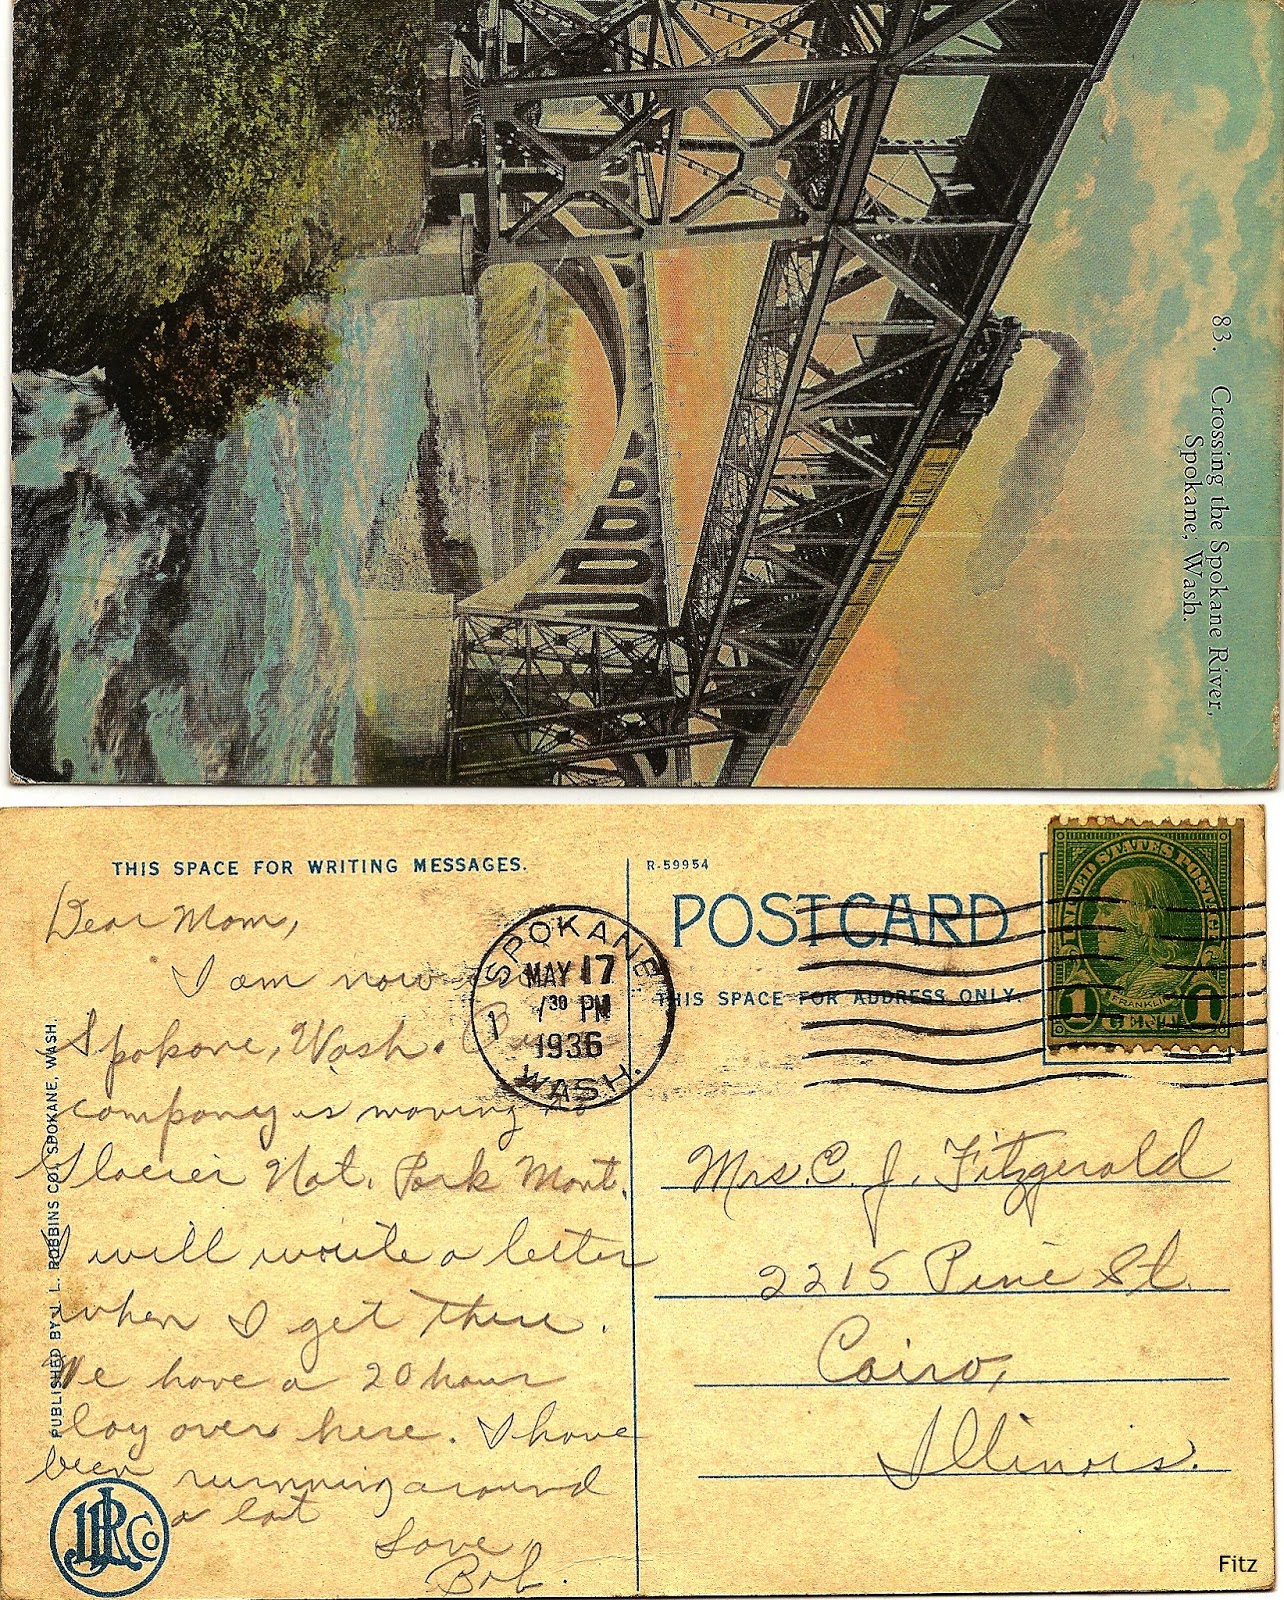 83. Crossing the Spokane River,
Spokane, Wash.
THIS SPACE FOR WRITING MESSAGES.
Dear Mom,
I am now in
Spokane, Wash.
company is moving to
Glacier Nat. Park Mont.
I will write a letter
when I get there.
We have a 20 hour
lay over here. I have
been running around
a lot
Love,
Bob.
PUBLISHED BY J. L. ROBBINS CO., SPOKANE, WASH.
JLR Co
SPOKANE
MAY 17
730 PM
1
1936
WASH.
R-59954
POST CARD
THIS SPACE FOR ADDRESS ONLY.
UNITED STATES POSTAGE
FRANKLIN
1 CENT 1
Mrs. C. J. Fitzgerald
2215 Pine St.
Cairo,
Illinois.
Fitz